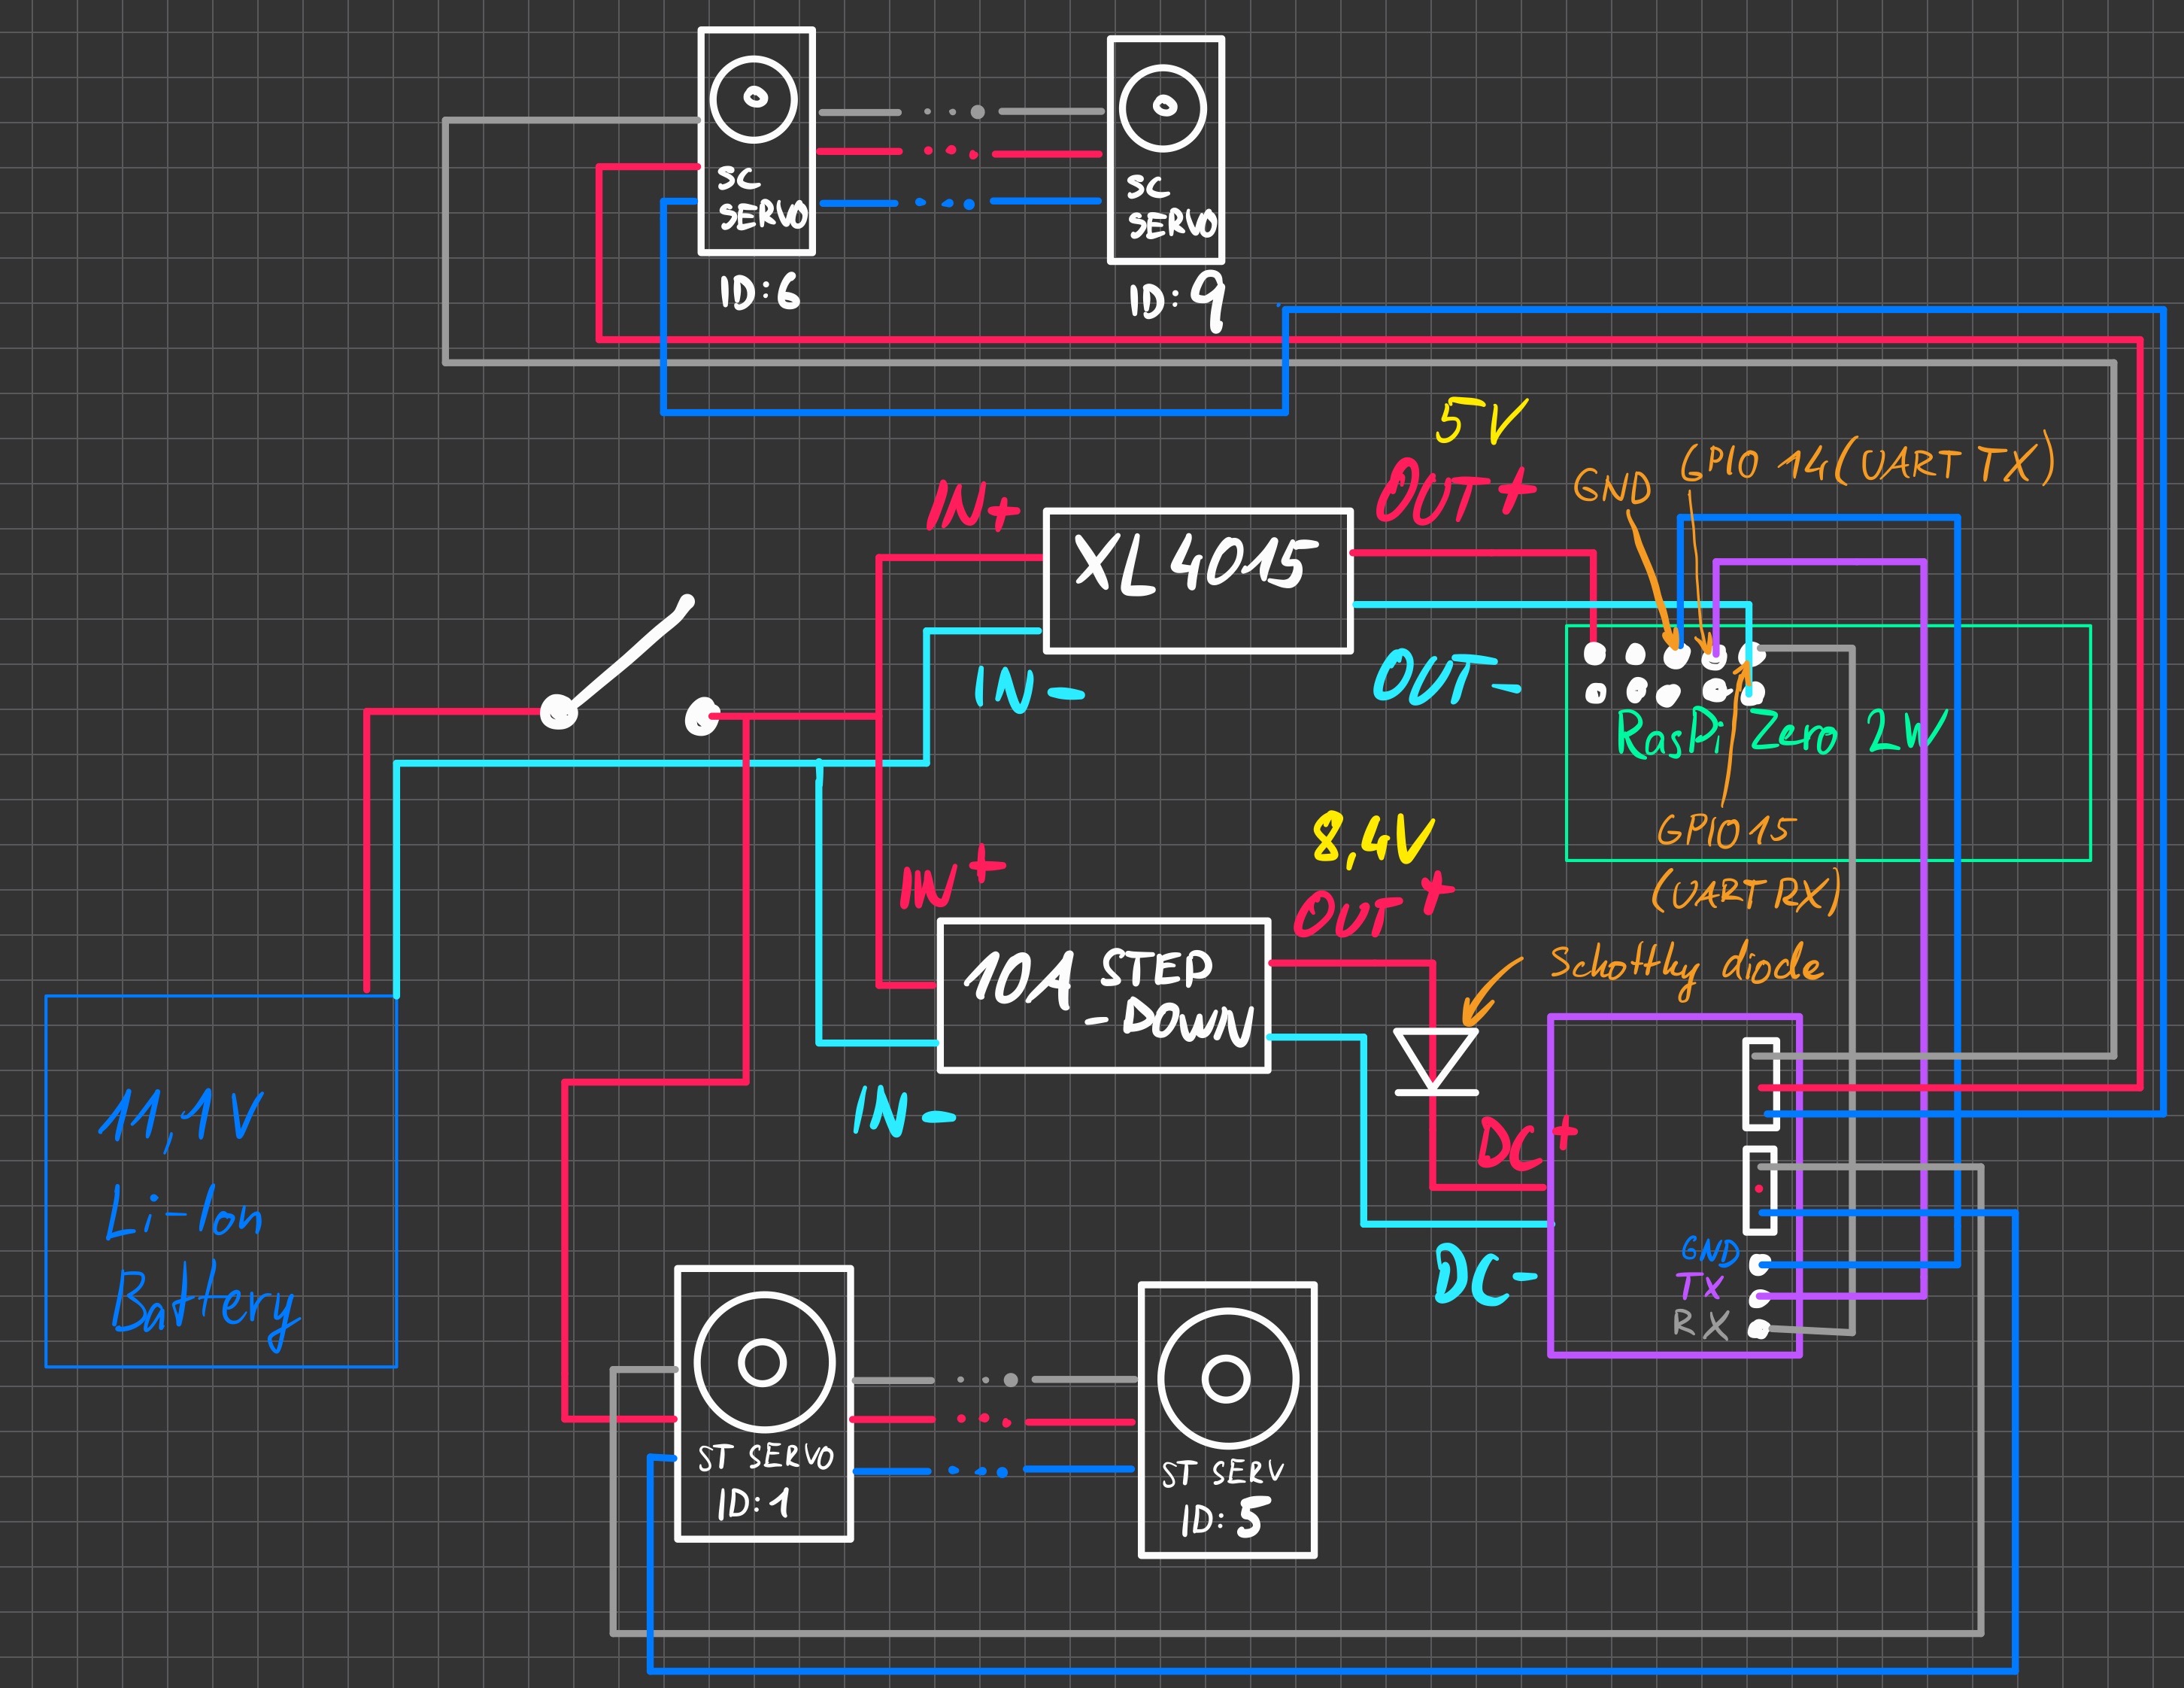 SC
SERVO
ID:6
SC
SERVO
ID:9
5V
OUT+
GND
GPIO 14(UART TX)
IN+
XL4015
IN-
OUT-
RasPi Zero 2W
GPIO15
(UART RX)
8,4V
IN+
OUT+
10A STEP
-DOWN
Schottky diode
IN-
DC+
DC-
11,1V
Li-Ion
Battery
GND
TX
RX
ST SERVO
ID:1
ST SERV
ID:5